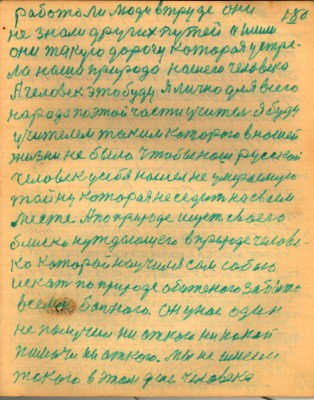 работали люди в труде они 180
не знали других путей и шли
они такую дорогу которая устре
ла наша природа нашего человека
А человек это буду я лично для всего
народа по этой части учится я буду
учителем таким которого в нашей
жизни не было чтобы наш русской
человек у себя нашел не умираемую
тайну которая не сидит на своем
месте. А по природе ищет своего
близко нуждающего в природе челове-
ка которой научился сам собою
искат по природе обиженого забыто
всеми болного. он у нас один
не получил ни откого ни какой
памочи ни откого. мы не имеем
такого в этом деле человека